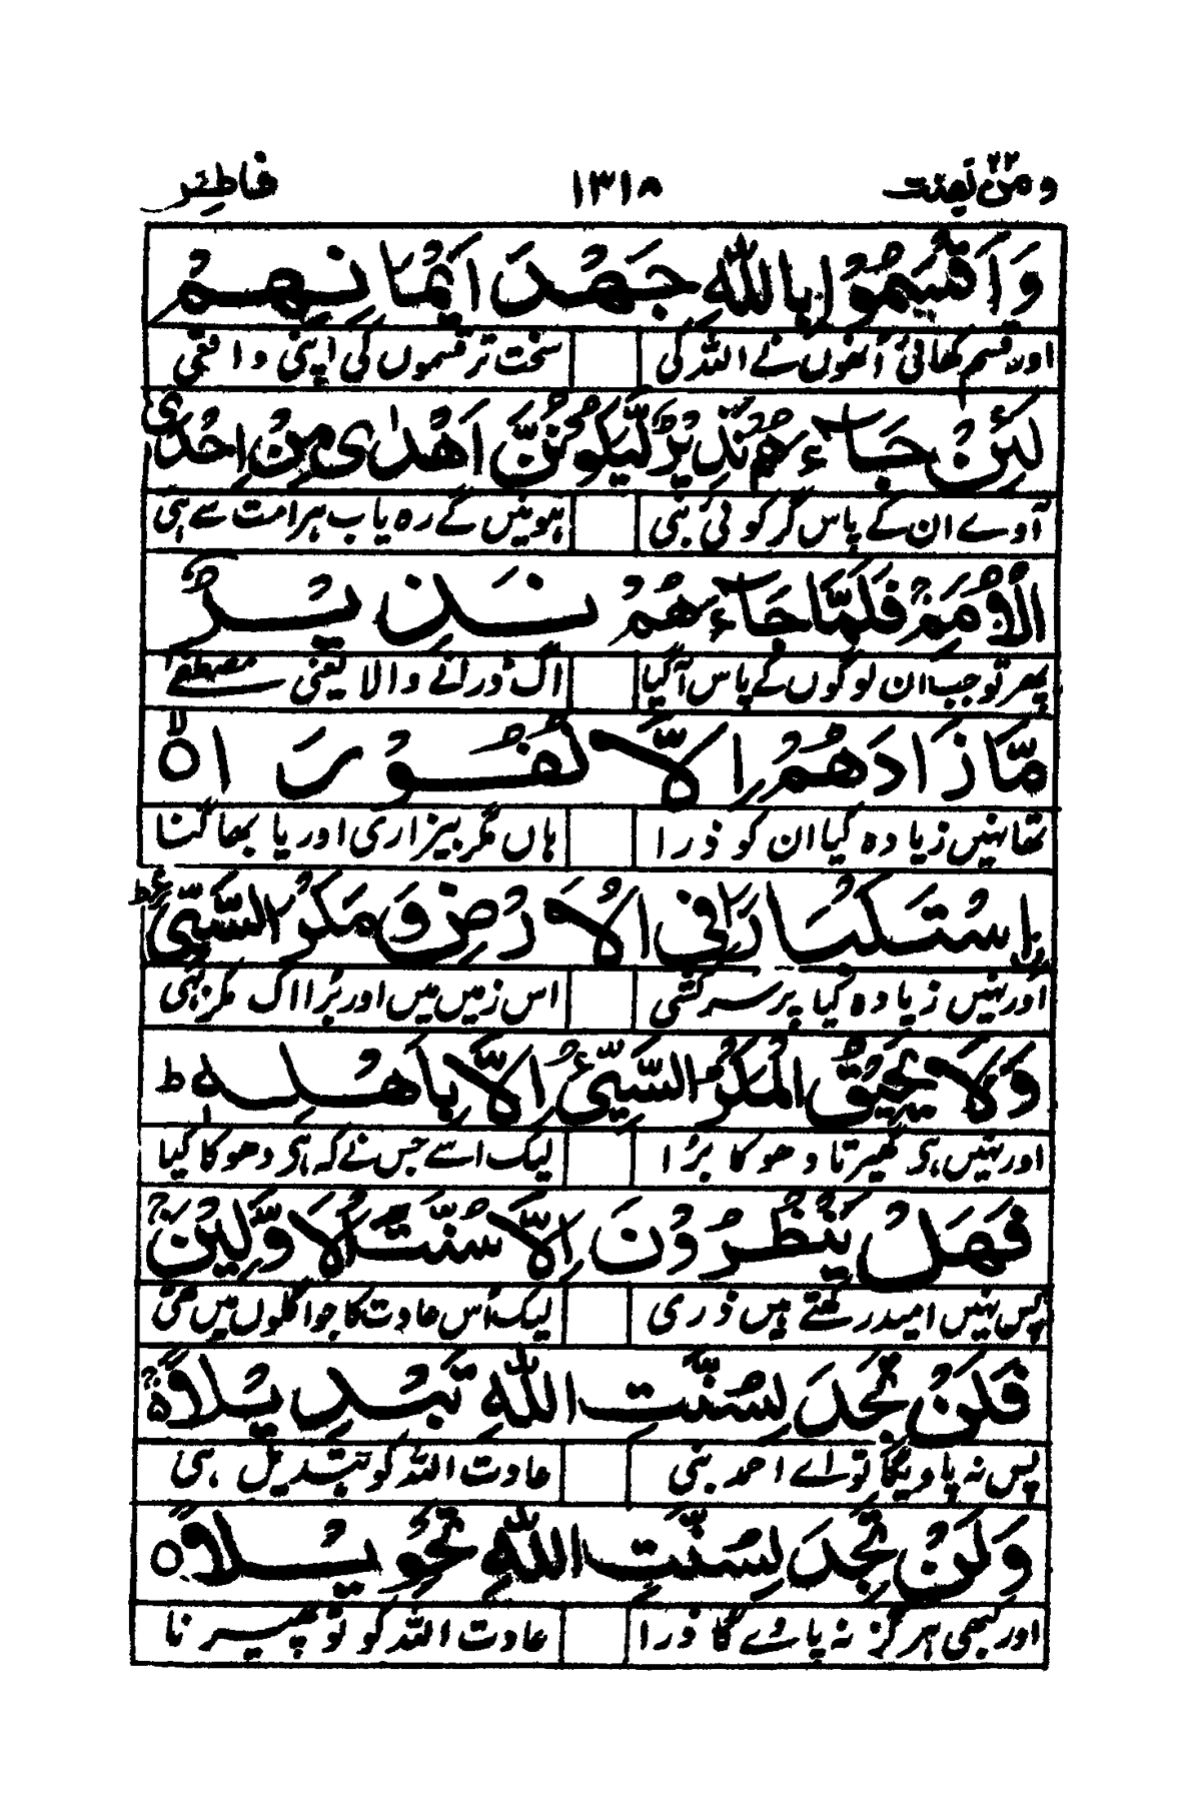 ومن یقنت ۲۲ ۱۳۱۸ فاطر
وَاَقْسَمُوْا بِاللّٰهِ جَهْدَ اَيْمَانِهِمْ
اور قسم کھائی اُنھوں نے اللہ کی سخت تر قسموں کی اپنی واقعی
لَئِنْ جَآءَهُمْ نَذِيْرٌ لَّيَكُوْنُنَّ اَهْدٰى مِنْ اِحْدَى
آوے ان کے پاس گر کوئی نبی ہوئیں گے رہ یاب ہر امت سے ہی
الْاُمَمِ ۚ فَلَمَّا جَآءَهُمْ نَذِيْرٌ
پھر تو جب ان لوگوں کے پاس آ گیا اک ڈرانے والا یعنی مصطفےٰ
مَّا زَادَهُمْ اِلَّا نُفُوْرَا ۙ
تھا نہیں زیادہ کیا ان کو ذرا ہاں مگر بیزاری اور یا بھاگنا
اسْتِكْبَارًا فِى الْاَرْضِ وَمَكْرَ السَّيِّئِ ؕ
اور نہیں زیادہ کیا پر سرکشی اس زمیں میں اور بُرا اک مکر ہی
وَلَا يَحِيْقُ الْمَكْرُ السَّيِّئُ اِلَّا بِاَهْلِهٖ ؕ
اور نہیں ہی گھیرتا دھوکا بُرا لیک اسے جس نے کہ ہی دھوکا کیا
فَهَلْ يَنْظُرُوْنَ اِلَّا سُنَّتَ الْاَوَّلِيْنَ ۚ
پس نہیں امید رکھتے ہیں ذری لیک اُس عادت کا جو اگلوں میں تھی
فَلَنْ تَجِدَ لِسُنَّتِ اللّٰهِ تَبْدِيْلًا ۚ
پس نہ پاویگا تو اے احمد نبی عادت اللہ کو تبدیل ہی
وَلَنْ تَجِدَ لِسُنَّتِ اللّٰهِ تَحْوِيْلًا ○
اور کبھی ہرگز نہ پاوے گا ذرا عادت اللہ کو تو پھیرنا